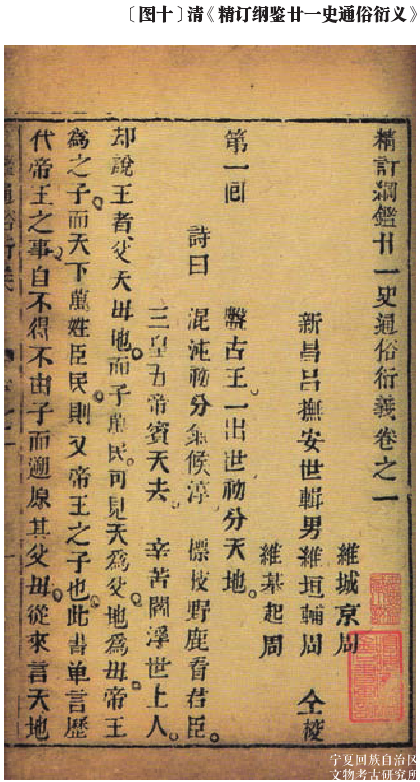 〔图十〕清《精订纲鉴廿一史通俗衍义》
精訂綱鑑廿一史通俗衍義卷之一
維城京周
新昌呂撫安世輯男維垣輔周 仝挍
維基起周
第一回 盤古王一出世初分天地。
詩曰 混沌初分氣候淳 標枝野鹿看君臣。
三皇五帝賓天去。 辛苦閻浮世上人。
却說王者父天毋地而子萬民。可見天爲父。地爲毋。帝王
爲之子。而天下萬姓臣民。則又帝王之子也。此書单言歷
代帝王之事。自不得不由子而遡原其父毋。從來言天地
宁夏回族自治区
文物考古研究所